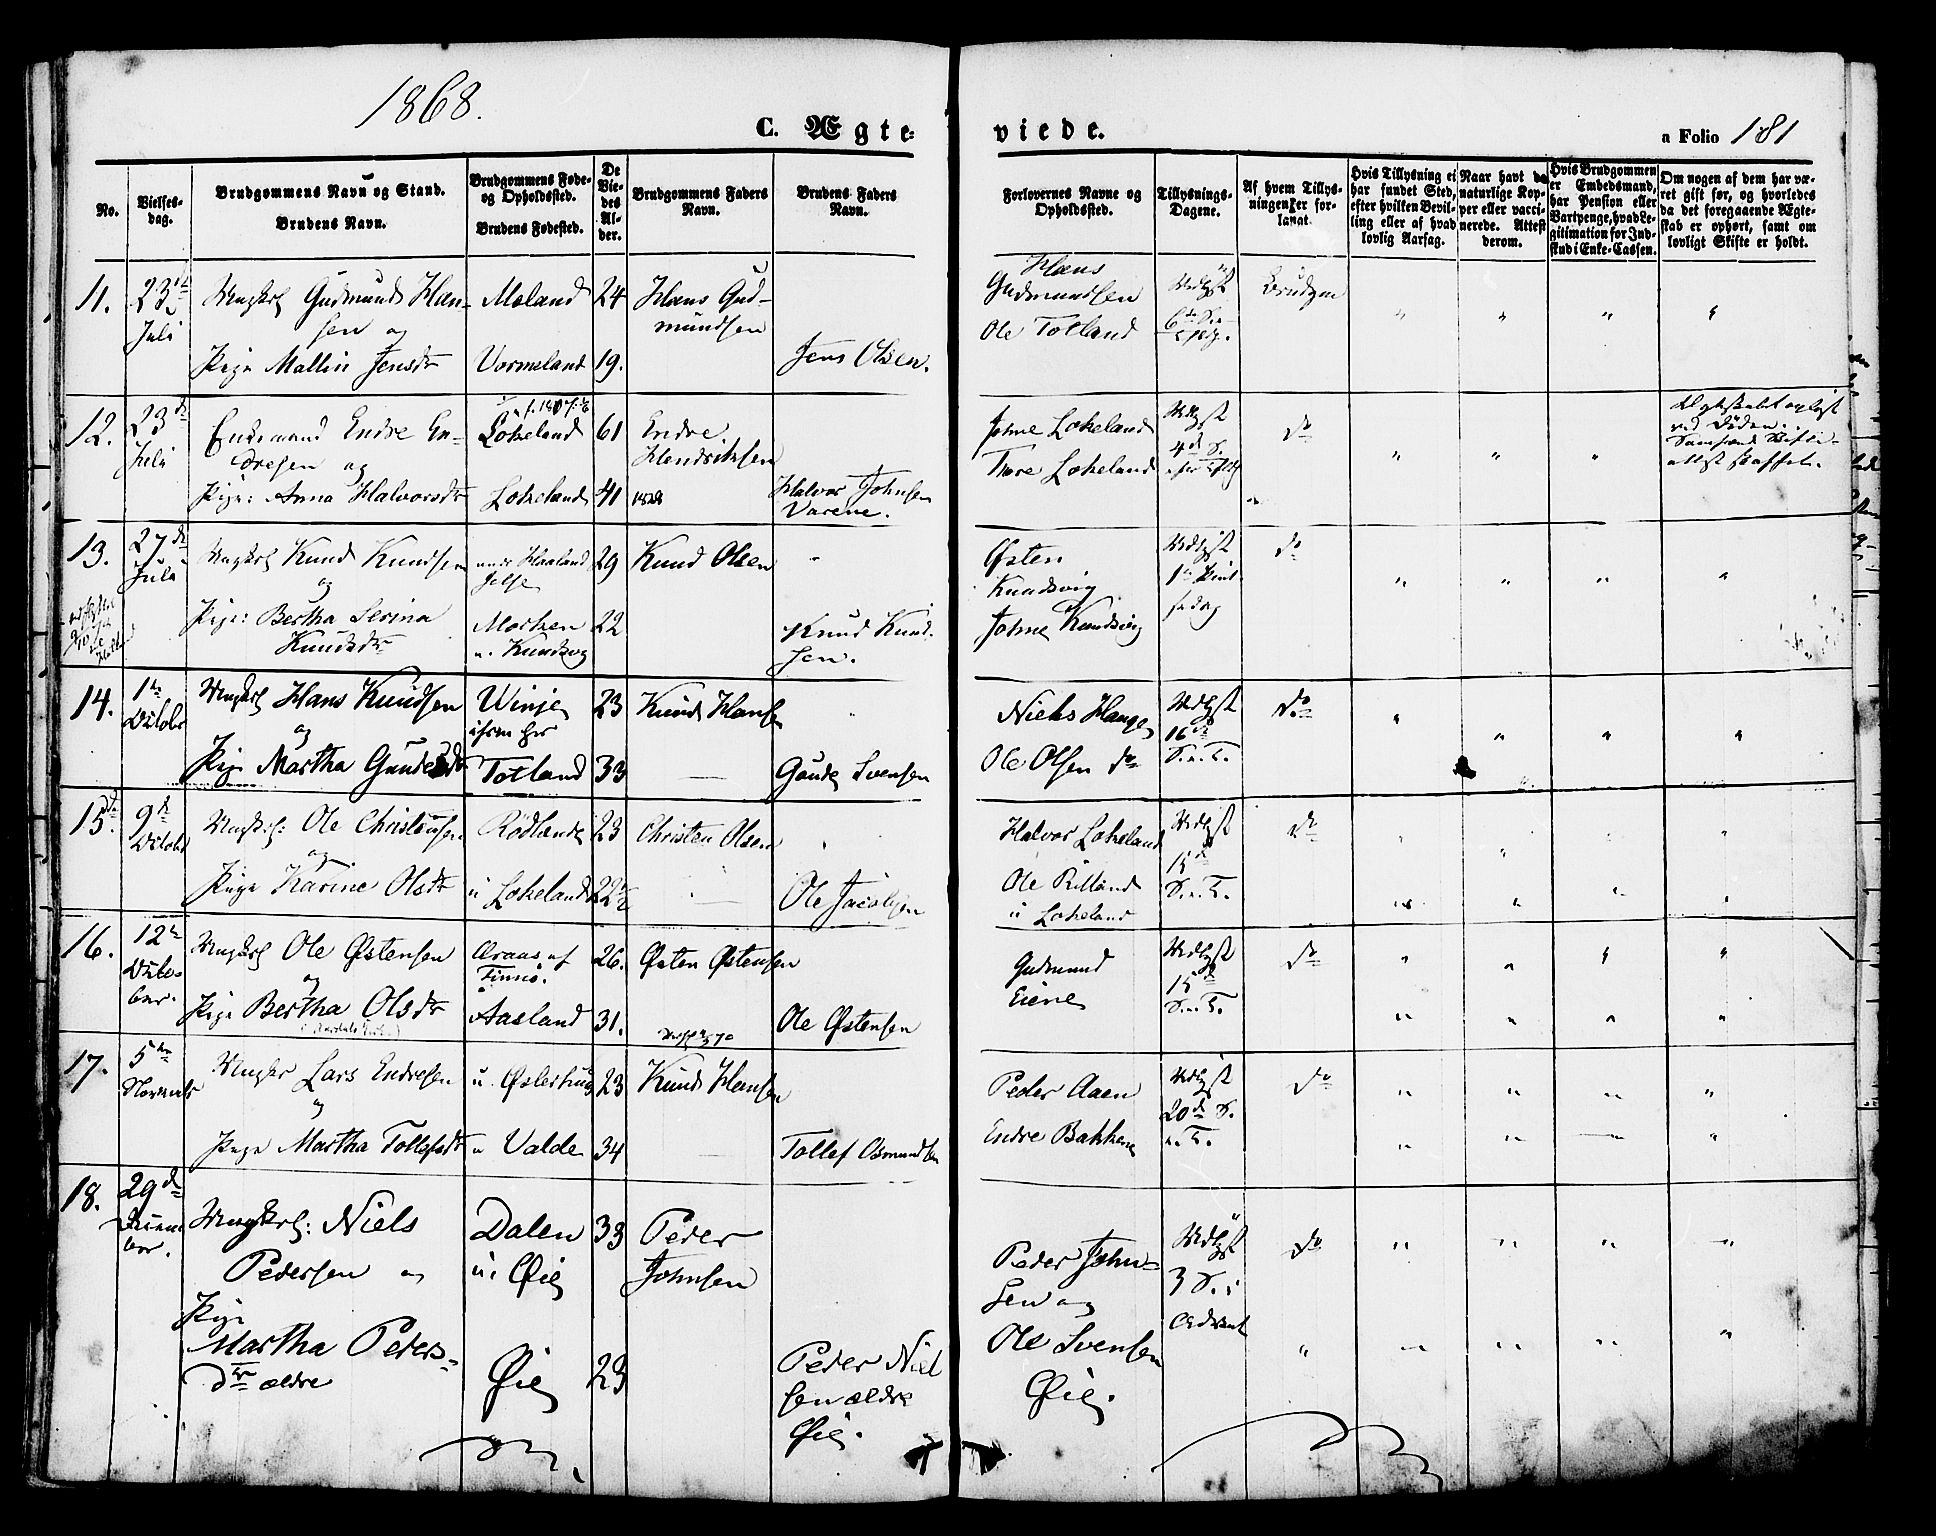 1868.
C. Ægte-
viede.
a Folio 181
No.
Vielses-
dag.
Brudgommens Navn og Stand.
Brudens Navn.
Brudgommens Føde-
og Opholdssted.
Brudens Fødested.
De
Vie-
des
Al-
der.
Brudgommens Faders
Navn.
Brudens Faders
Navn.
Forlovernes Navne og
Opholdssted.
Tillysnings-
Dagene.
Af hvem Tillys-
ningen er for-
langt.
Hvis Tillysning ei
har fundet Sted,
efter hvilken Bevil-
ling eller af hvad
lovlig Aarsag.
Naar havt de
naturlige Kop-
per eller vacci-
nerede. Attest
derom.
Hvis Brudgommen
er Embedsmand,
har Pension eller
Vartpenge, hvad Le-
gitimation for Ind-
skud i Enke-Cassen.
Om nogen af dem har væ-
ret gift før, og hvorledes
da det foregaaende Ægte-
skab er ophørt, samt om
lovligt Skifte er holdt.
11.
23
Juli
Ungkrl Gudmund Han-
sen og
Pige Mallin Jensdr
Moland
Vormeland
24
19.
Hans Gud-
mundsen
Jens Olsen.
Hans
Gudmundsen
Ole Totland
12.
23 de
Juli
Enkemand Endre En-
dresen og
Pige: Anna Halvorsdr
Lokeland
Lokeland
61
41
Endre
Hendriksen
Halvor Johnsen
Varene.
Johne Lokeland
Tore Lokeland
do
13.
27 de
Juli
Ungkrl Knud Knudsen
og
Pige: Bertha Serina
Knudsdr
Haaland
Jelse
u. Knudsvig
29
22
Knud Olsen
Knud Knud-
sen.
Østen
Knudsvig
Johne Knudsvig
do
14.
1
Octobr
Ungkrl Hans Knudsen
og
Pige Martha Gaudesdr
Winje
Totland
23
33
Knud Hansen
Gaude Svensen
Niels Hauge
Ole Olsen do
16 de
S. e. T.
do
15.
9 de
Octobr
Ungkrl: Ole Christensen
og
Pige Karine Olsdr
Rødlande
u Lokeland
23
22 1/2
Christen Olsen
Ole Jacobsen
Halvor Lokeland
Ole
u Lokeland
15 de
S. e. T.
do
16.
12
Octo-
ber.
Ungkrl Ole Østensen
og
Pige Bertha Olsdr
Finnø.
Aasland
26.
31.
Østen Østensen
Ole Østensen
Gudmund
Eiene
15 de
S. e. T.
do
17.
5
Novembr
Ungkr Lars Endresen
og
Pige Martha Tollefsdr
u. Østerhus
u Valde
23
34
Knud Hansen
Tollef Osmundsen
Peder Aaen
Endre Bakkene
20 de S.
e. T.
do
18.
29 de
Decem
ber.
Ungkrl: Niels
Pedersen og
Pige
Martha Peders-
dtr ældre
Dalen
u. Øie
Øie
33
23
Peder
Johnsen
Peder Niel
sen ældre
Øie.
Peder John-
sen og
Ole Svensen
Øie.
3 S. i
Advent
do